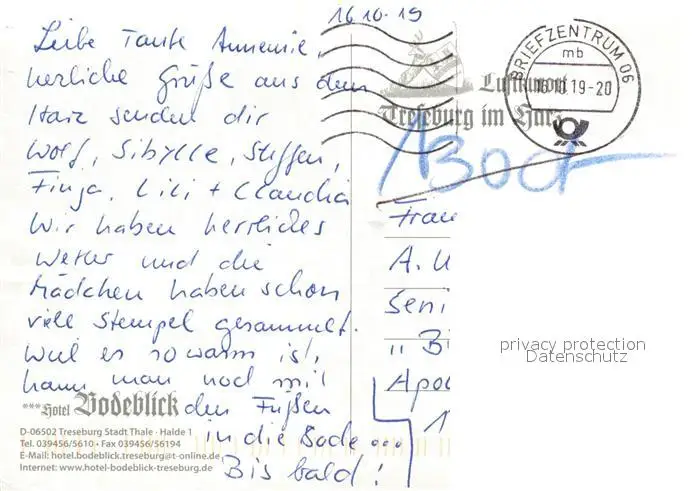 16.10.19
Liebe Tante Annemie,
herzliche Grüße aus dem
Harz senden dir
Wolf, Sibylle, Steffen,
Finja, Lili + Claudia
Wir haben herrliches
Wetter und die
Mädchen haben schon
viele Stempel gesammelt.
Weil es so warm ist,
kann man noch mit
den Füßen
in die Bode ...
Bis bald!
***Hotel Bodeblick
D-06502 Treseburg Stadt Thale · Halde 1
Tel. 039456/5610 · Fax 039456/56194
E-Mail: hotel.bodeblick.treseburg@t-online.de
Internet: www.hotel-bodeblick-treseburg.de
Luftkurort
Treseburg im Harz
BRIEFZENTRUM 06
mb
16.10.19-20
Frau
A.
Seni
"Bi
Apo
1
privacy protection
Datenschutz